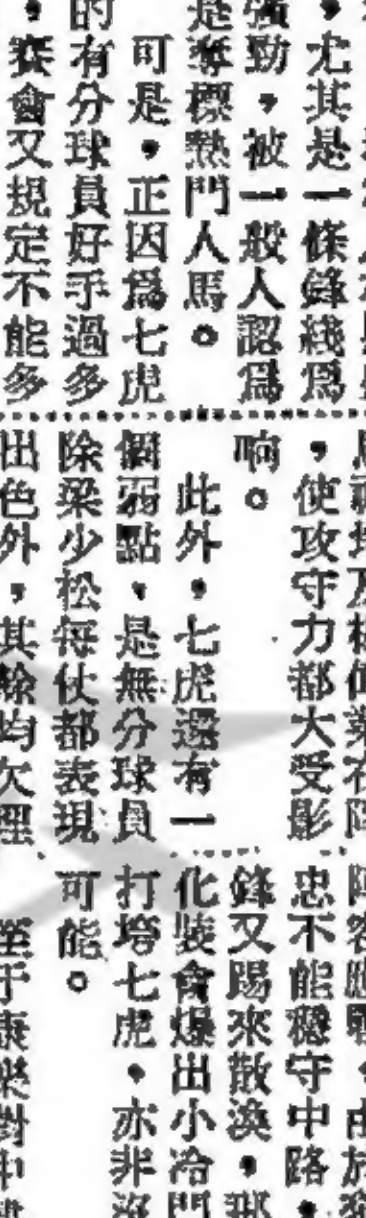 ，尤其是一條鋒綫爲
強勁，被一般人認爲
是奪標熱門人馬。
可是，正因爲七虎
的有分球員好手過多
，賽會又規定不能多
，使攻守力都大受影
响。
此外，七虎還有一
個弱點，是無分球員
除梁少松每仗都表現
出色外，其餘均欠理
忠不能穩守中路，
鋒又踢來散渙，那
化裝會爆出小冷門
打塔七虎，亦非沒
可能。
至于康樂對中